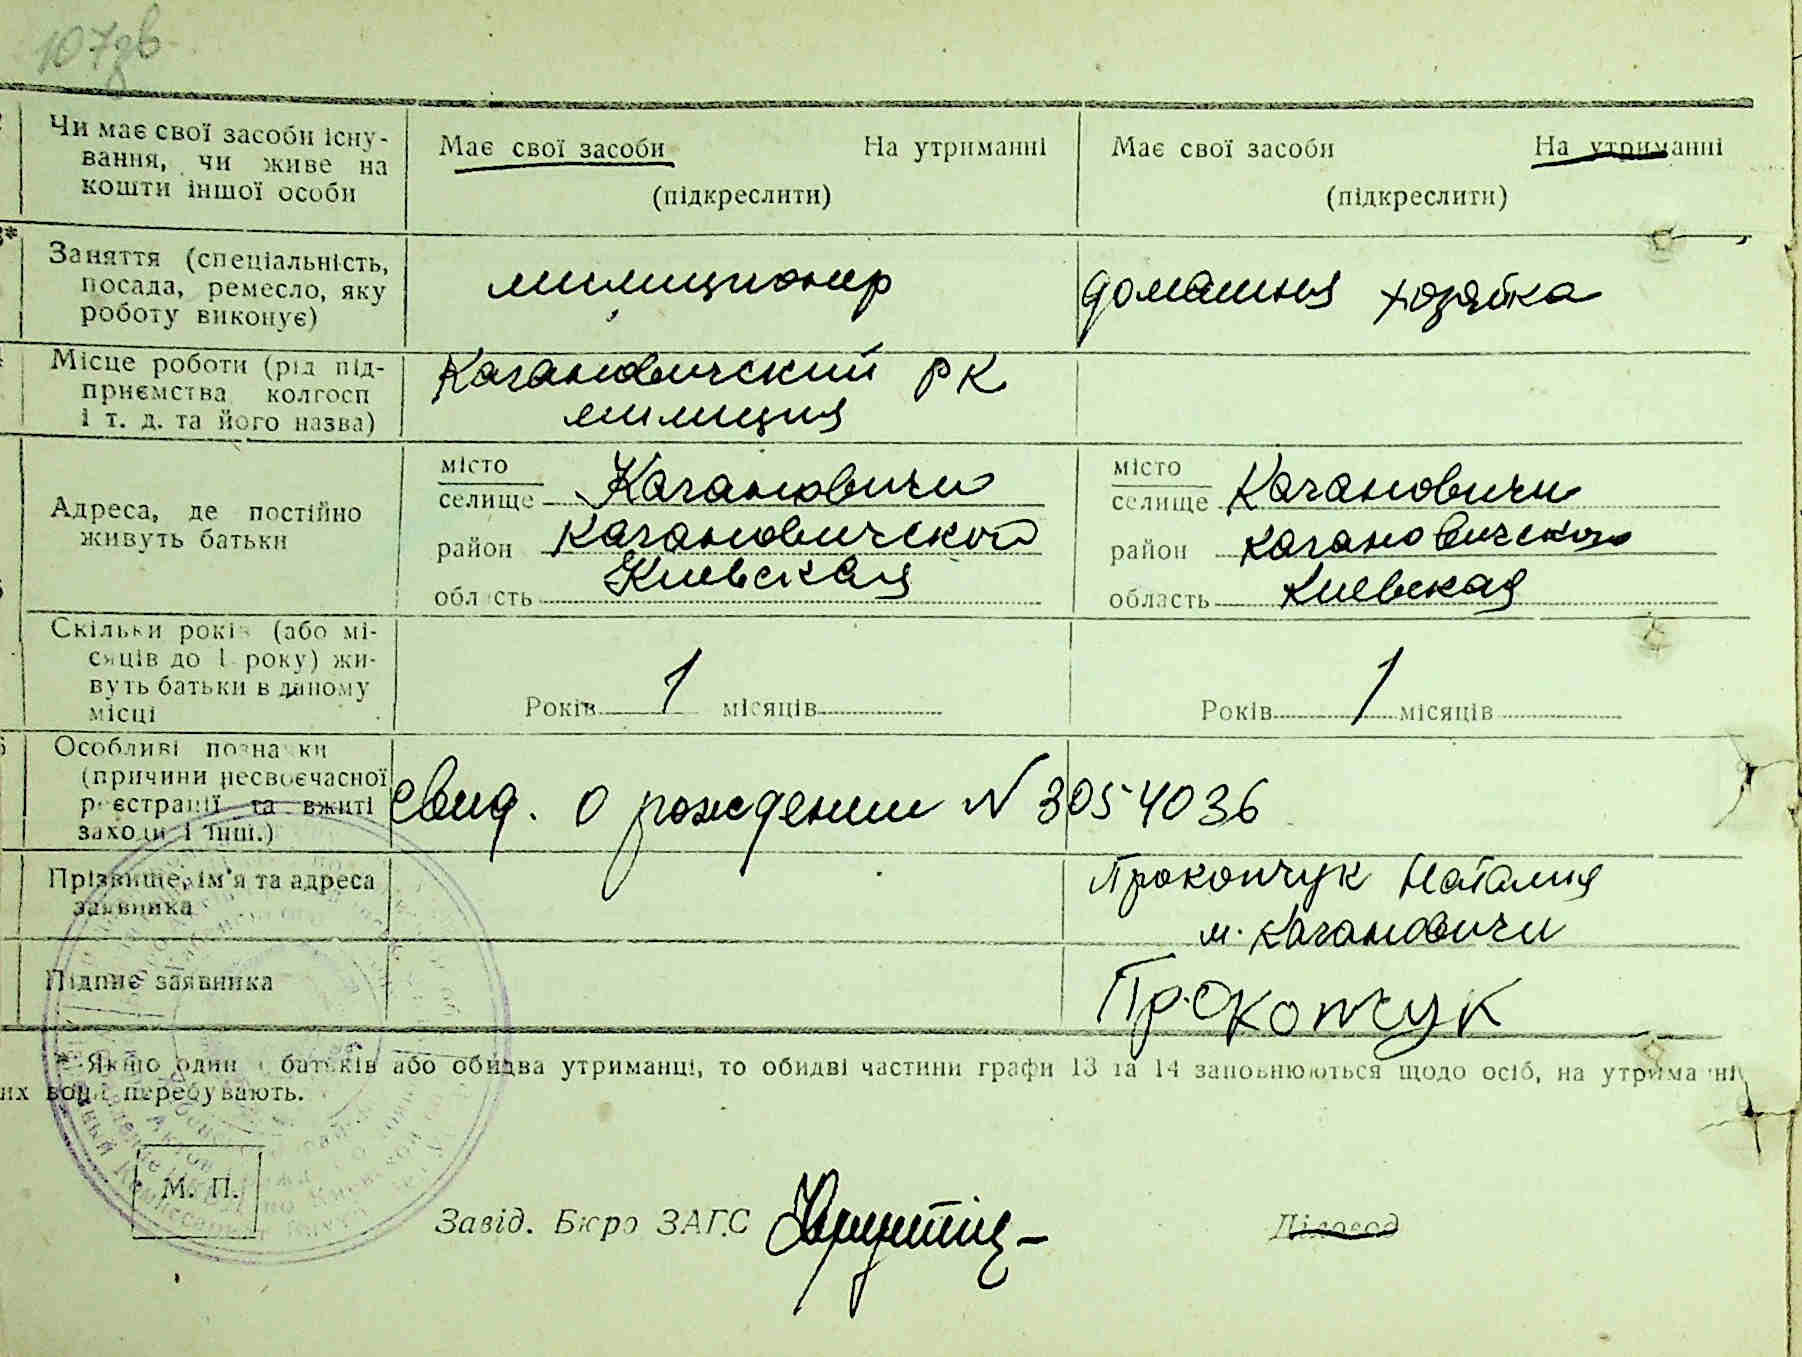 107зв
Чи має свої засоби існу-
вання, чи живе на
кошти іншої особи
Має свої засоби На утриманні
(підкреслити)
Має свої засоби На утриманні
(підкреслити)
Заняття (спеціальність,
посада, ремесло, яку
роботу виконує)
милиционер
домашняя хозяйка
Місце роботи (рід під-
приємства колгосп
і т. д. та його назва)
Кагановичский РК
милиция
Адреса, де постійно
живуть батьки
місто
селище Кагановичи
район Кагановичской
область Киевская
місто
селище Кагановичи
район Кагановичского
область Киевская
Скільки років (або мі-
сяців до 1 року) жи-
вуть батьки в даному
місці
Років 1 місяців
Років 1 місяців
Особливі познаки
(причини несвоєчасної
реєстрації та вжиті
заходи і інш.)
свид. о рождении N 3054036
Прізвище, ім'я та адреса
заявника
Прокопчук Наталия
м. Кагановичи
Підпис заявника
Прокопчук
* Якщо один з батьків або обидва утриманці, то обидві частини графи 13 та 14 заповнюються щодо осіб, на утриманні
их вони перебувають.
М. П.
Завід. Бюро ЗАГС
Діловод